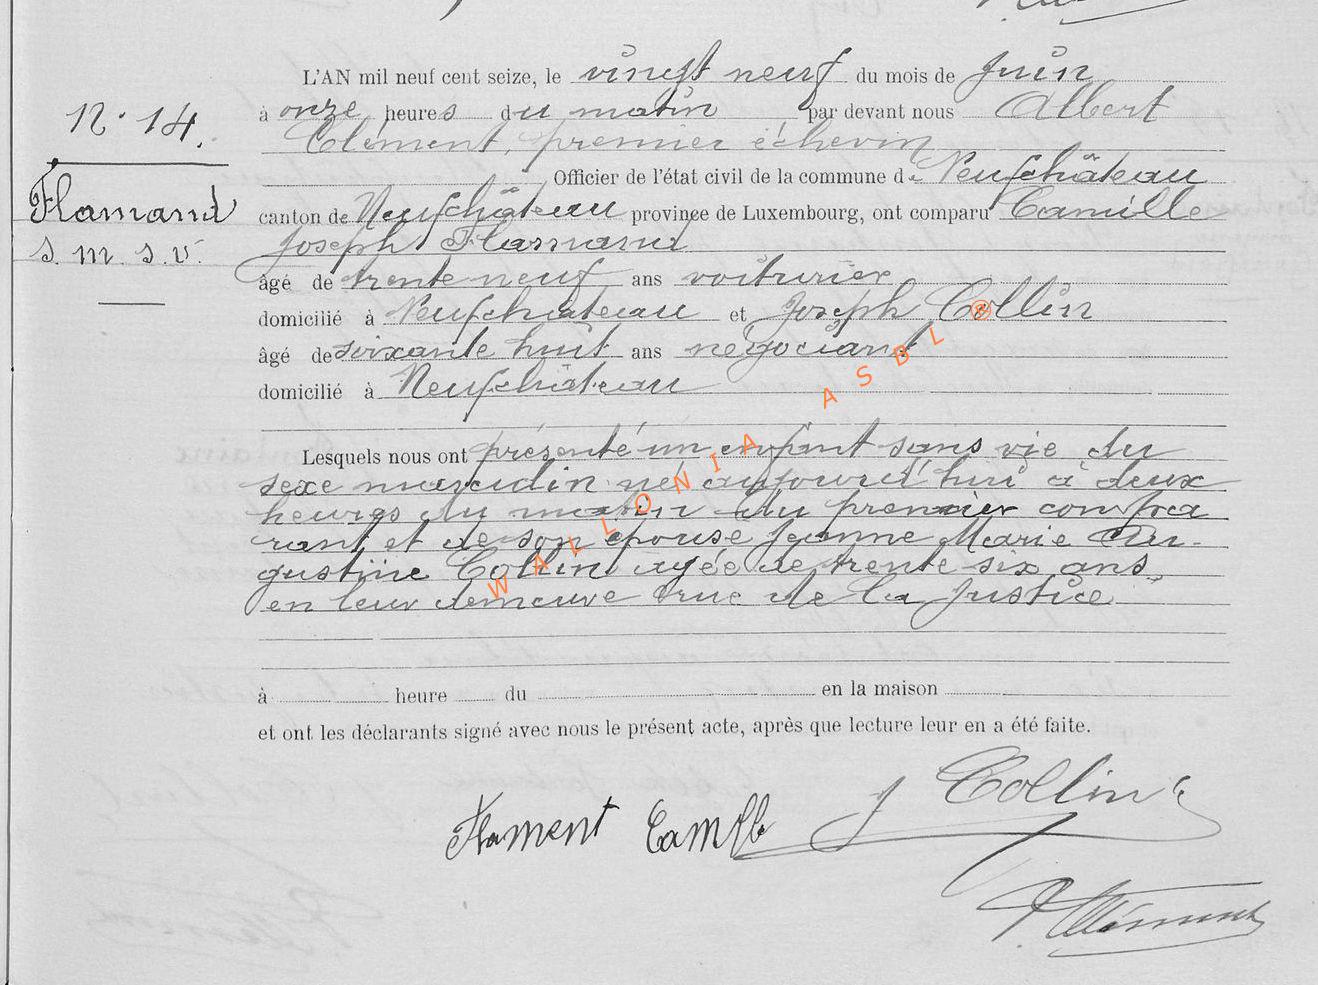 L'AN mil neuf cent seize, le vingt neuf du mois de Juin
N. 14.
à onze heures du matin par devant nous Albert
Clément, premier échevin
Officier de l'état civil de la commune de Neufchâteau
Flamand
canton de Neufchâteau province de Luxembourg, ont comparu Camille
Joseph Flamand
s. m. s. v.
âgé de trente neuf ans voiturier
domicilié à Neufchâteau et Joseph Collin
âgé de soixante huit ans négociant
domicilié à Neufchâteau
Lesquels nous ont présenté un enfant sans vie du
sexe masculin né aujourd'hui à deux
heures du matin du premier compa
rant et de son épouse Jeanne Marie Au-
gustine Collin agée de trente six ans,
en leur demeure rue de la Justice
à heure du en la maison
et ont les déclarants signé avec nous le présent acte, après que lecture leur en a été faite.
J Collin
Flament Camille
Clément
WALLONIA ASBL ®